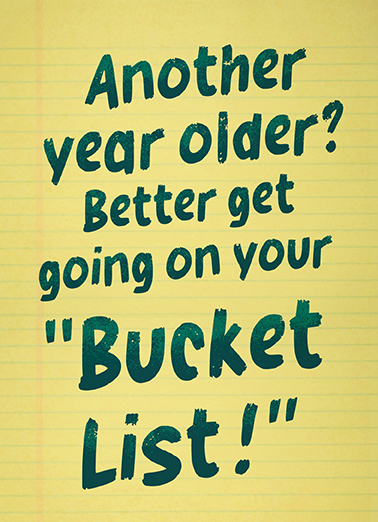 Another
year older?
Better get
going on your
"Bucket
List!"